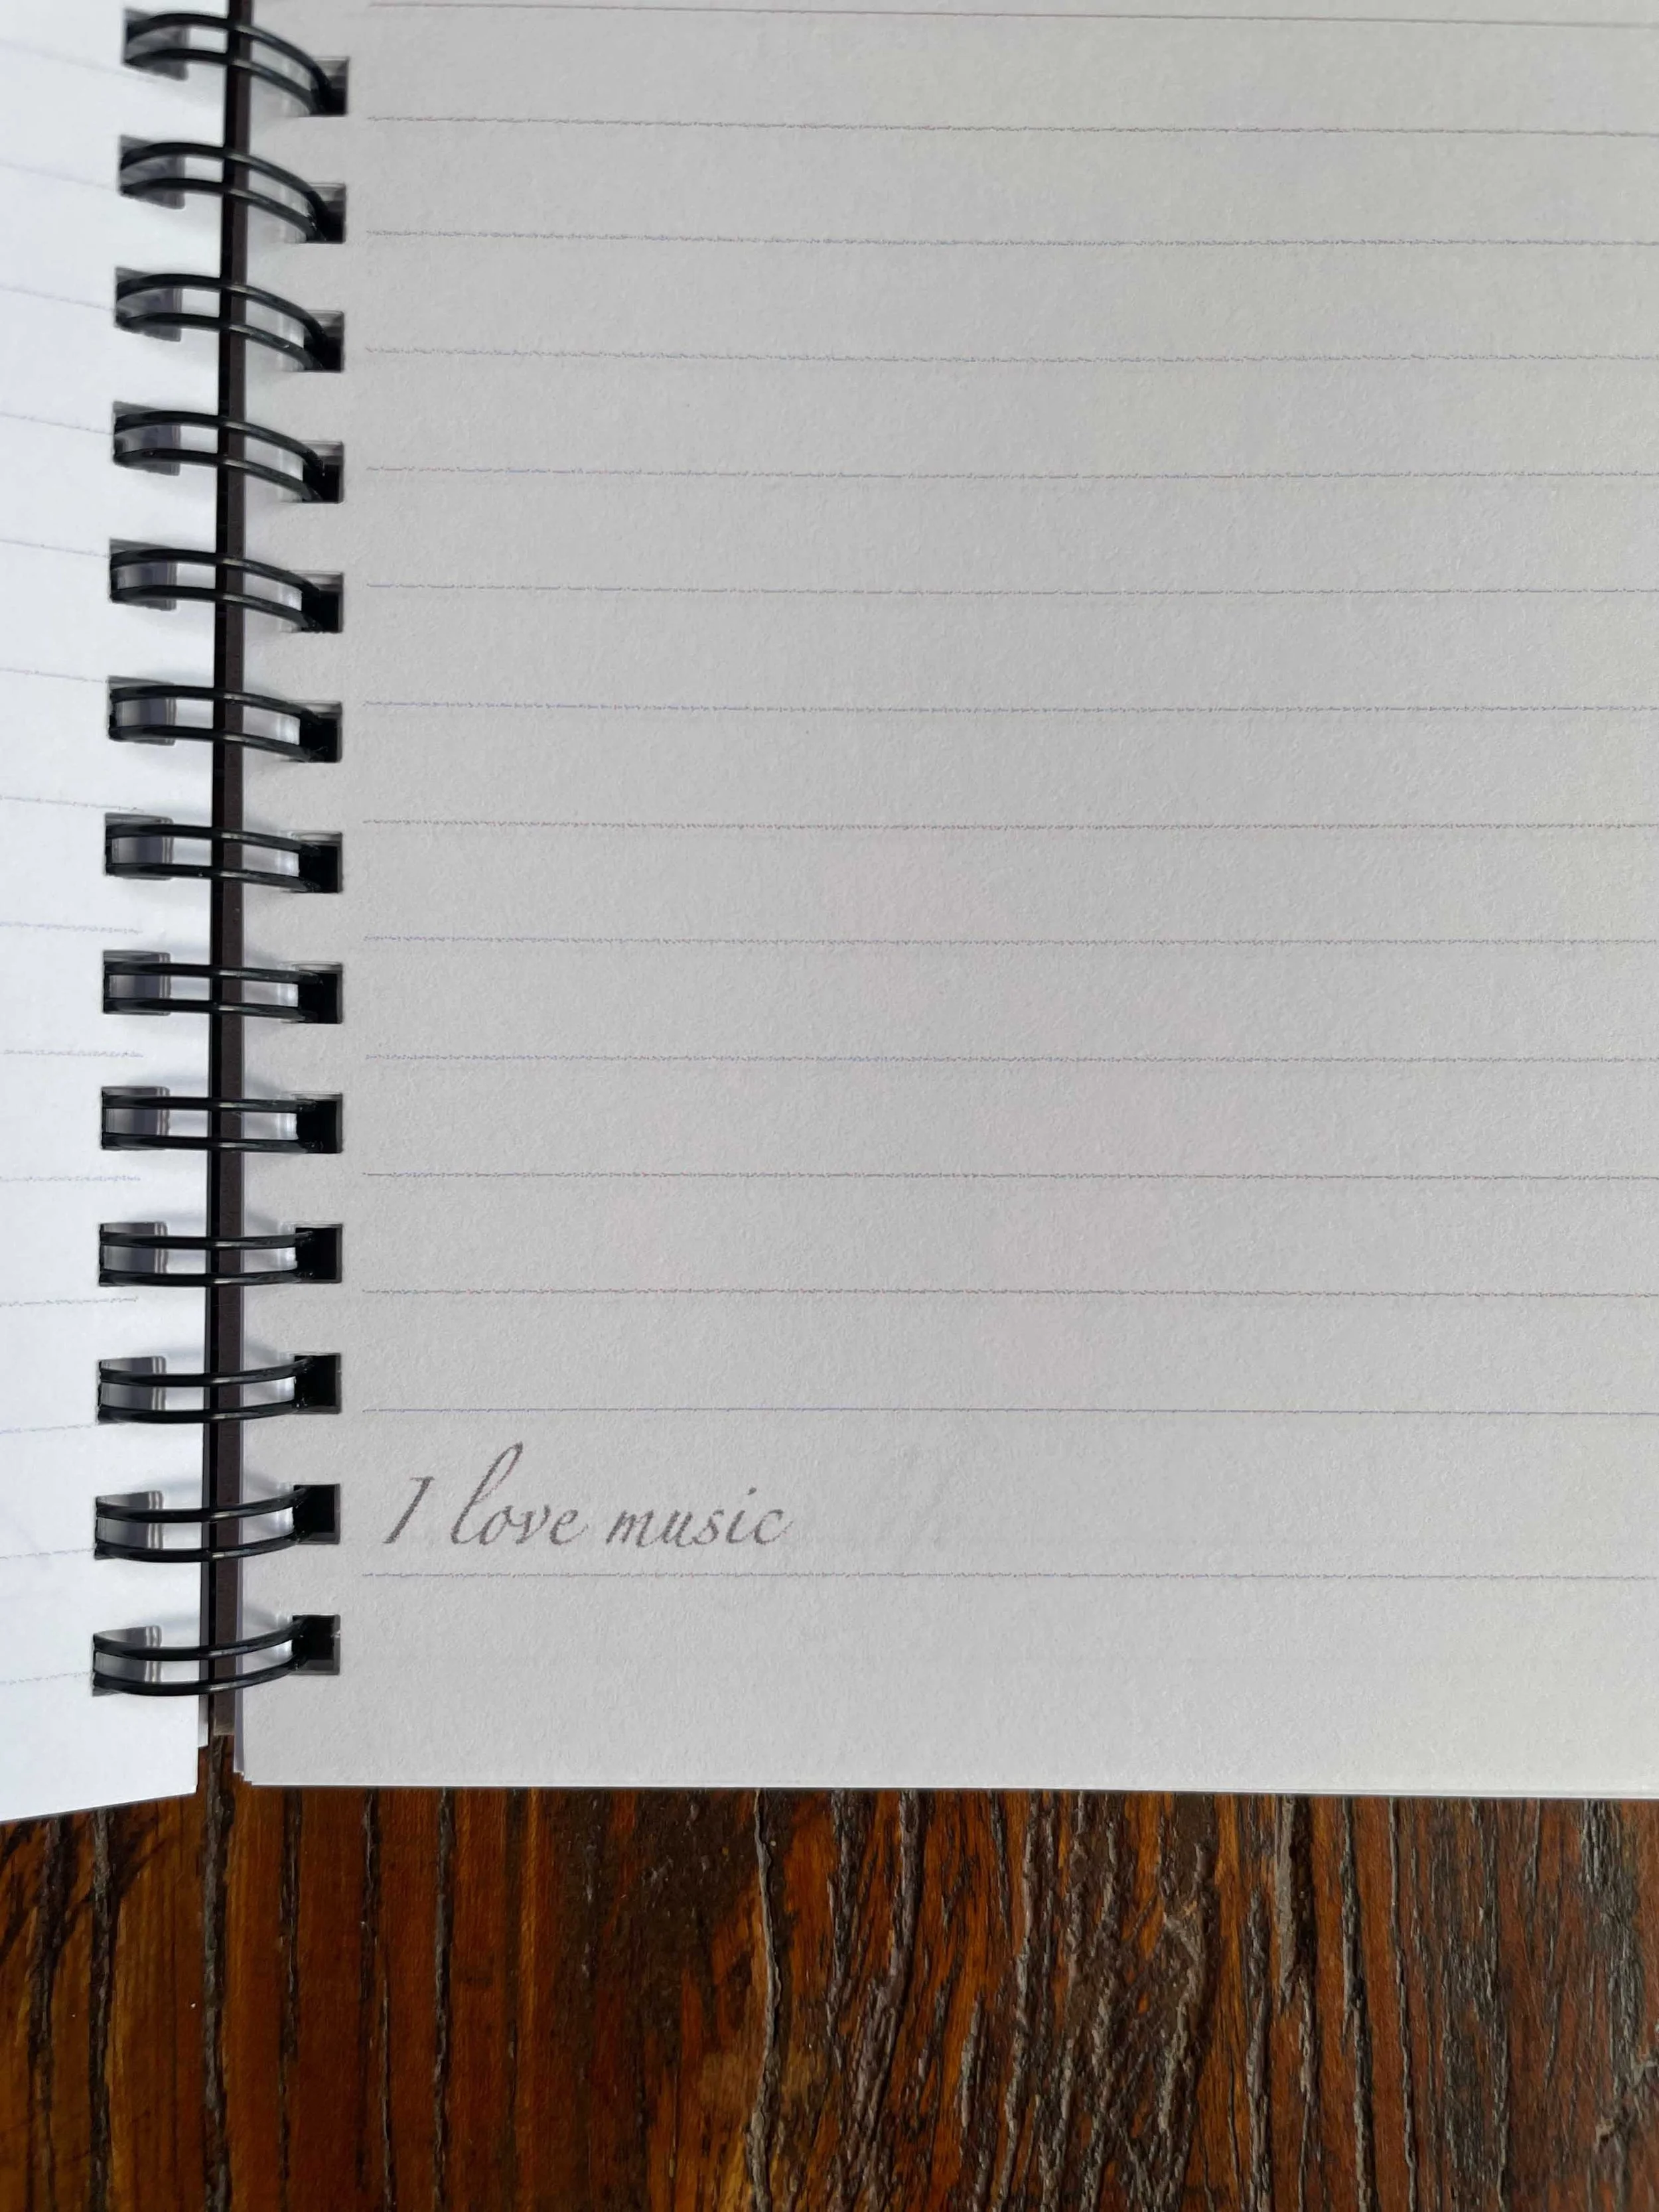 I love music